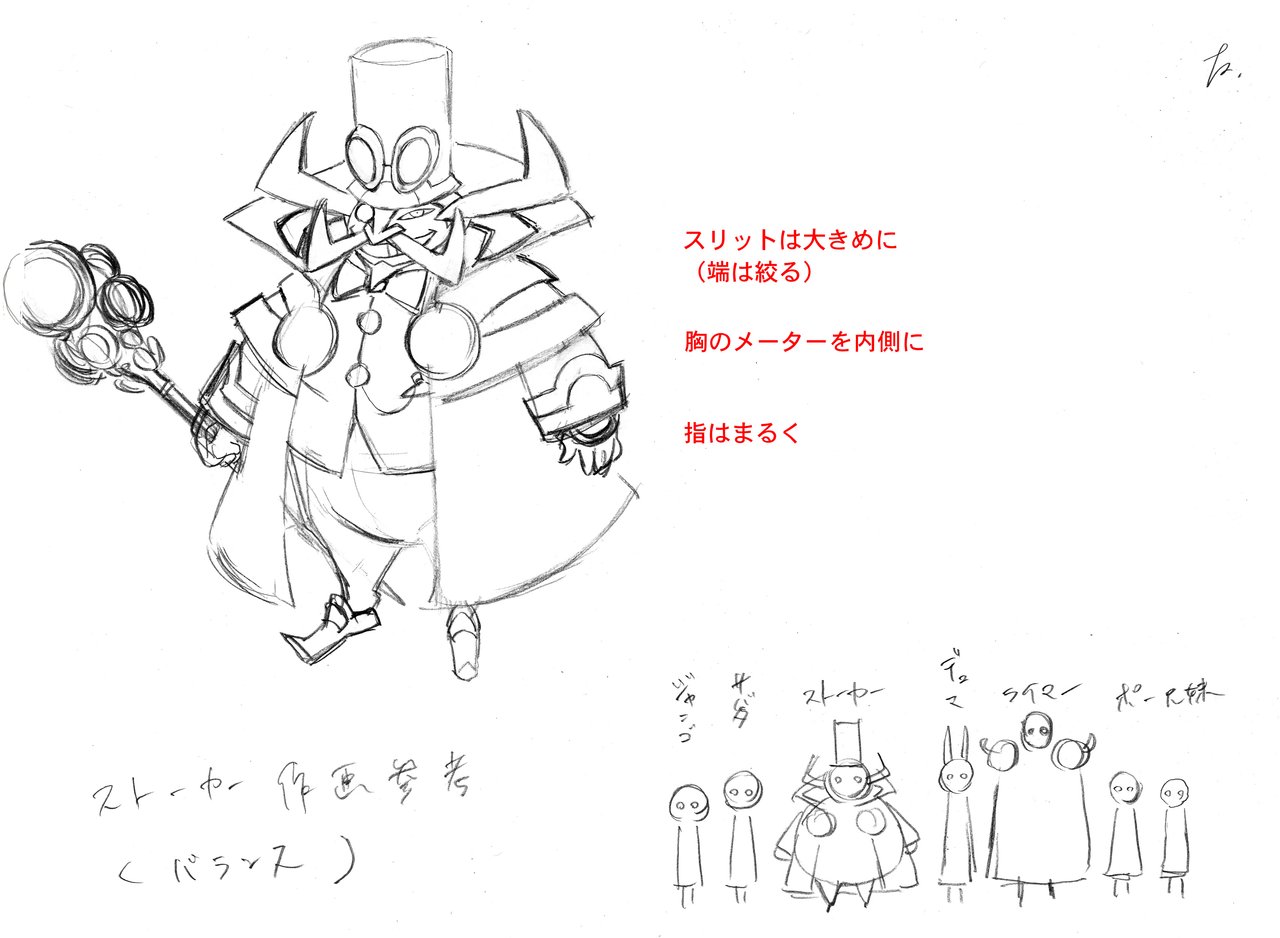 スリットは大きめに
（端は絞る）
胸のメーターを内側に
指はまるく
ジャンゴ
サバタ
ストーカー
デュマ
ライマン
ポー兄妹
ストーカー 作画参考
（バランス）